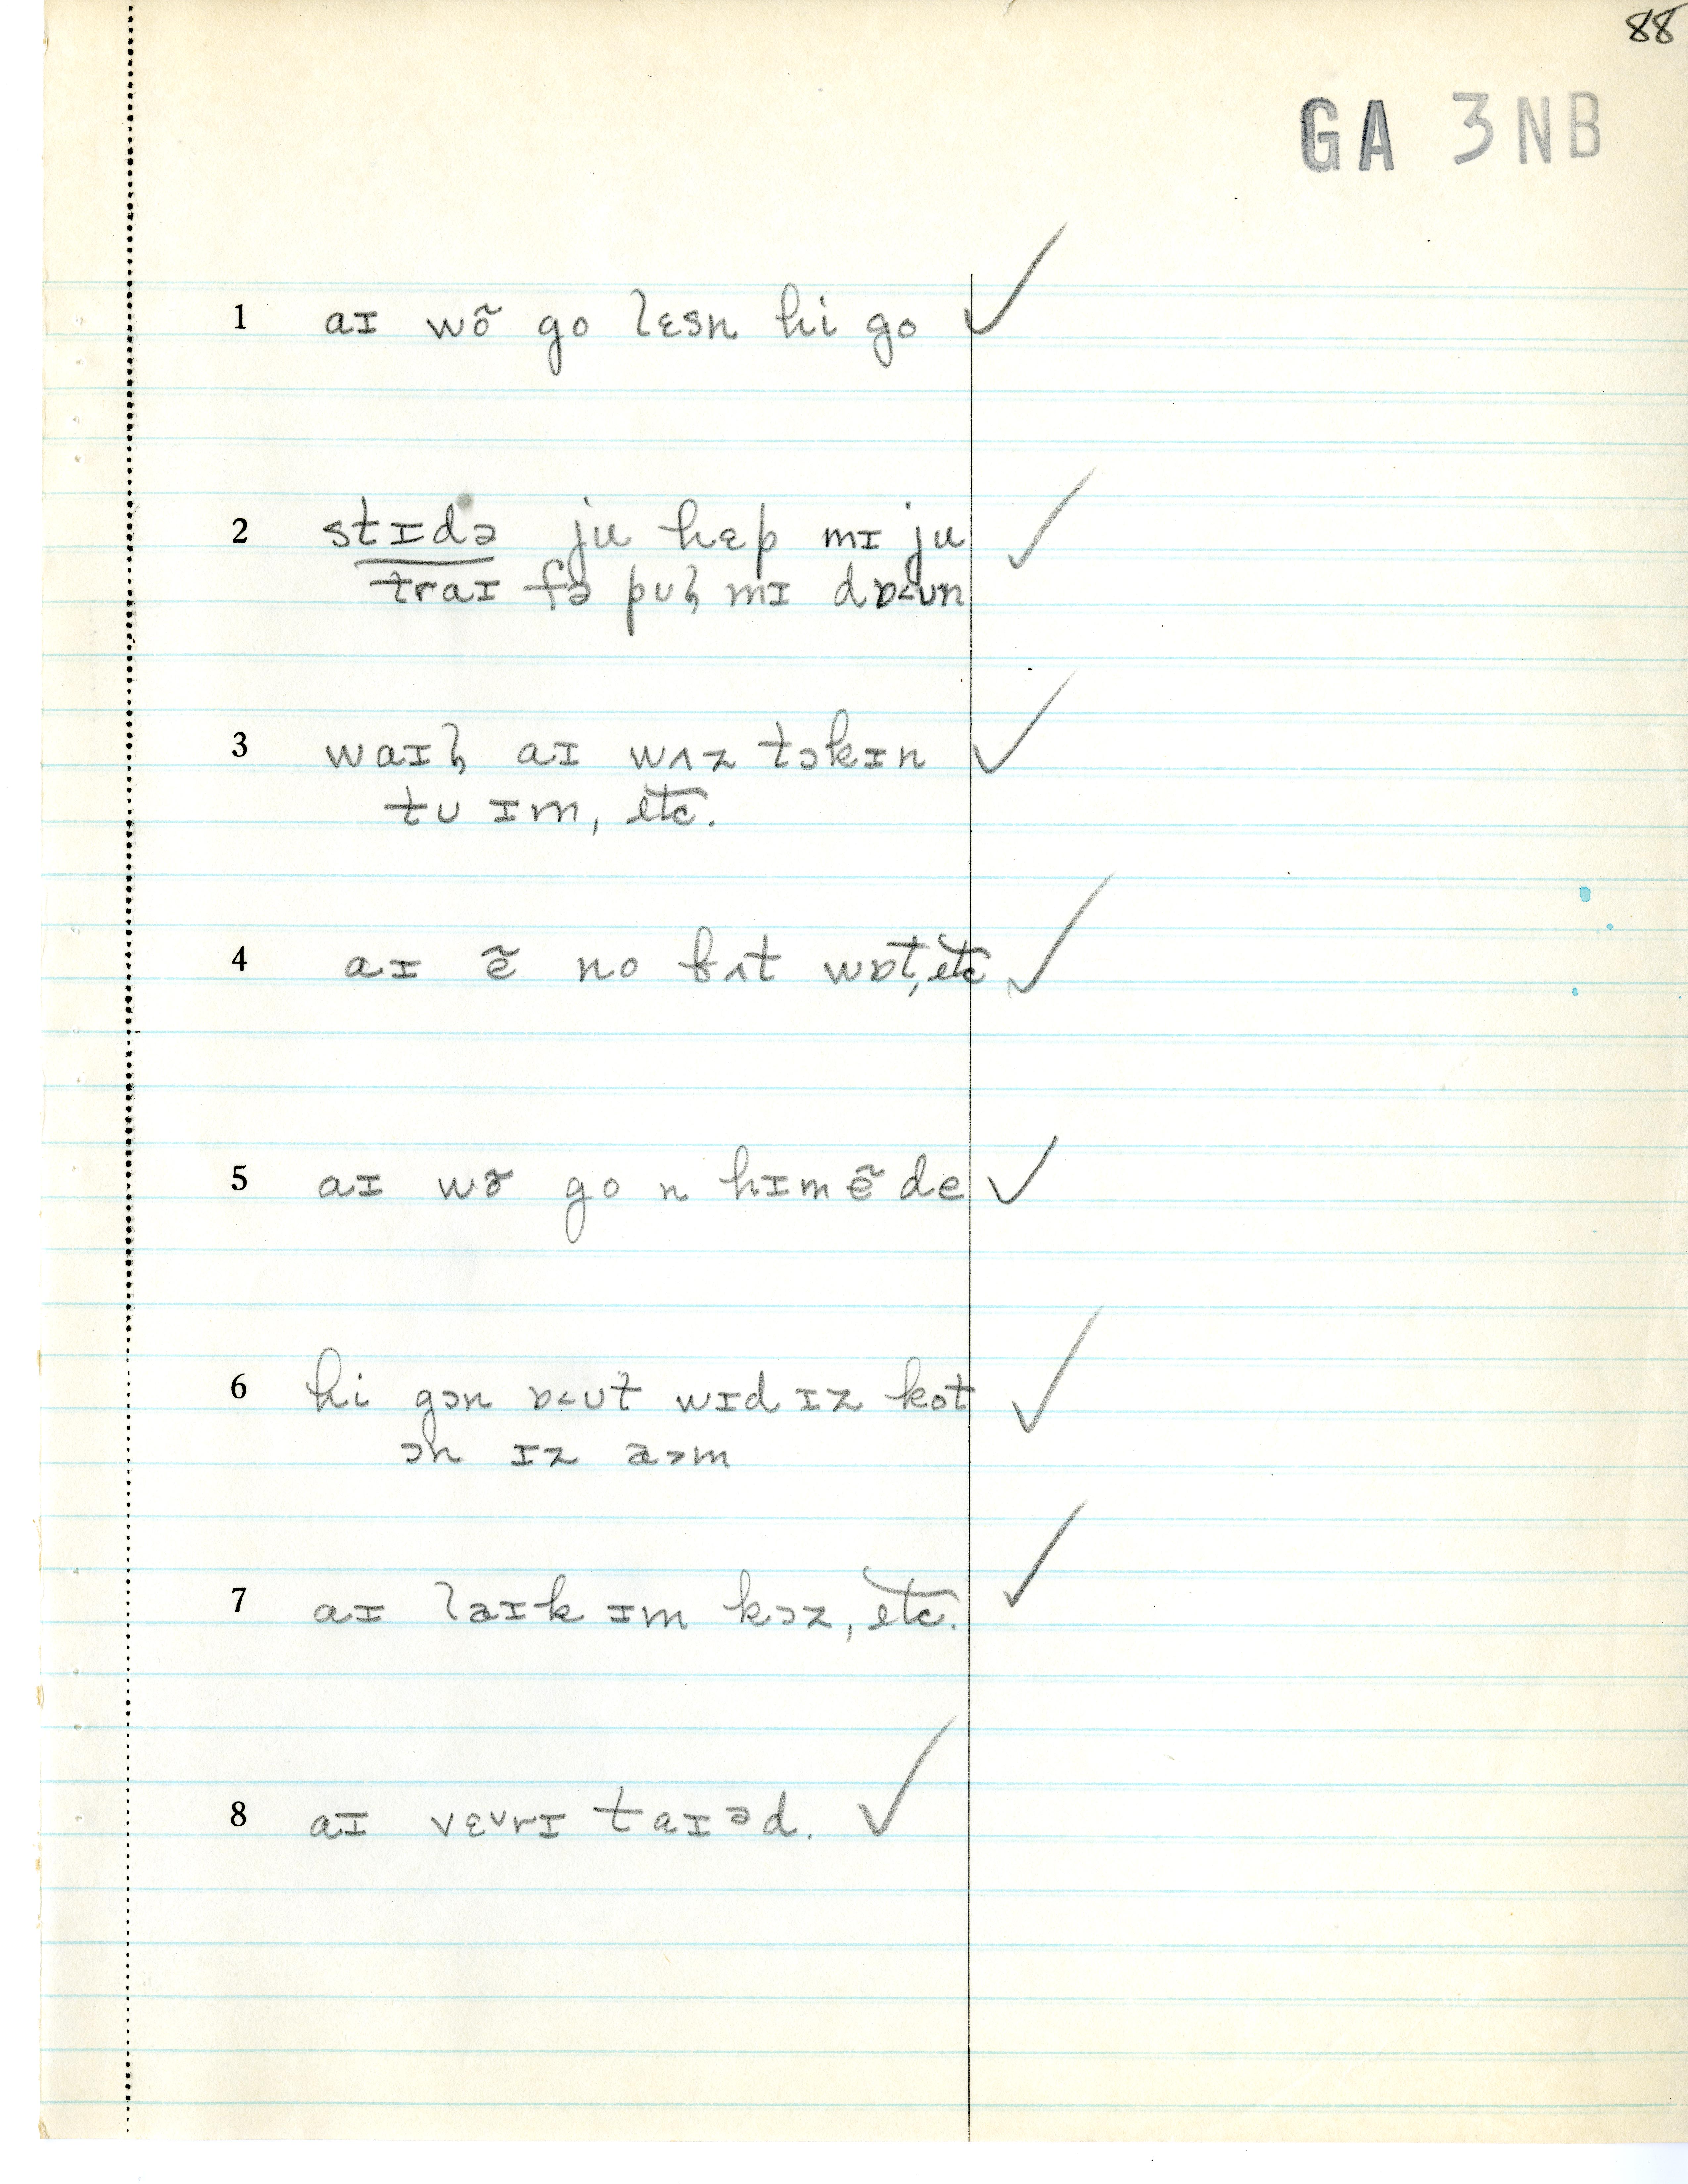 88
GA 3NB
1 aɪ wõ go lɛsn hi go ✓
2 stɪdə ju hɛp mɪ ju ✓
traɪ fə pʊɫ mɪ dɒ˂ʊn
3 waɪɫ aɪ wʌz tɔkɪn ✓
tʊ ɪm, etc.
4 aɪ ẽ no bʌt wɒt, etc ✓
5 aɪ wõ go n hɪm ẽ de ✓
6 hi gɔn ɒ˂ʊt wɪd ɪz kot ✓
ɔn ɪz a˃m
7 aɪ laɪk ɪm kɔz, etc. ✓
8 aɪ vɛvrɪ taɪəd. ✓